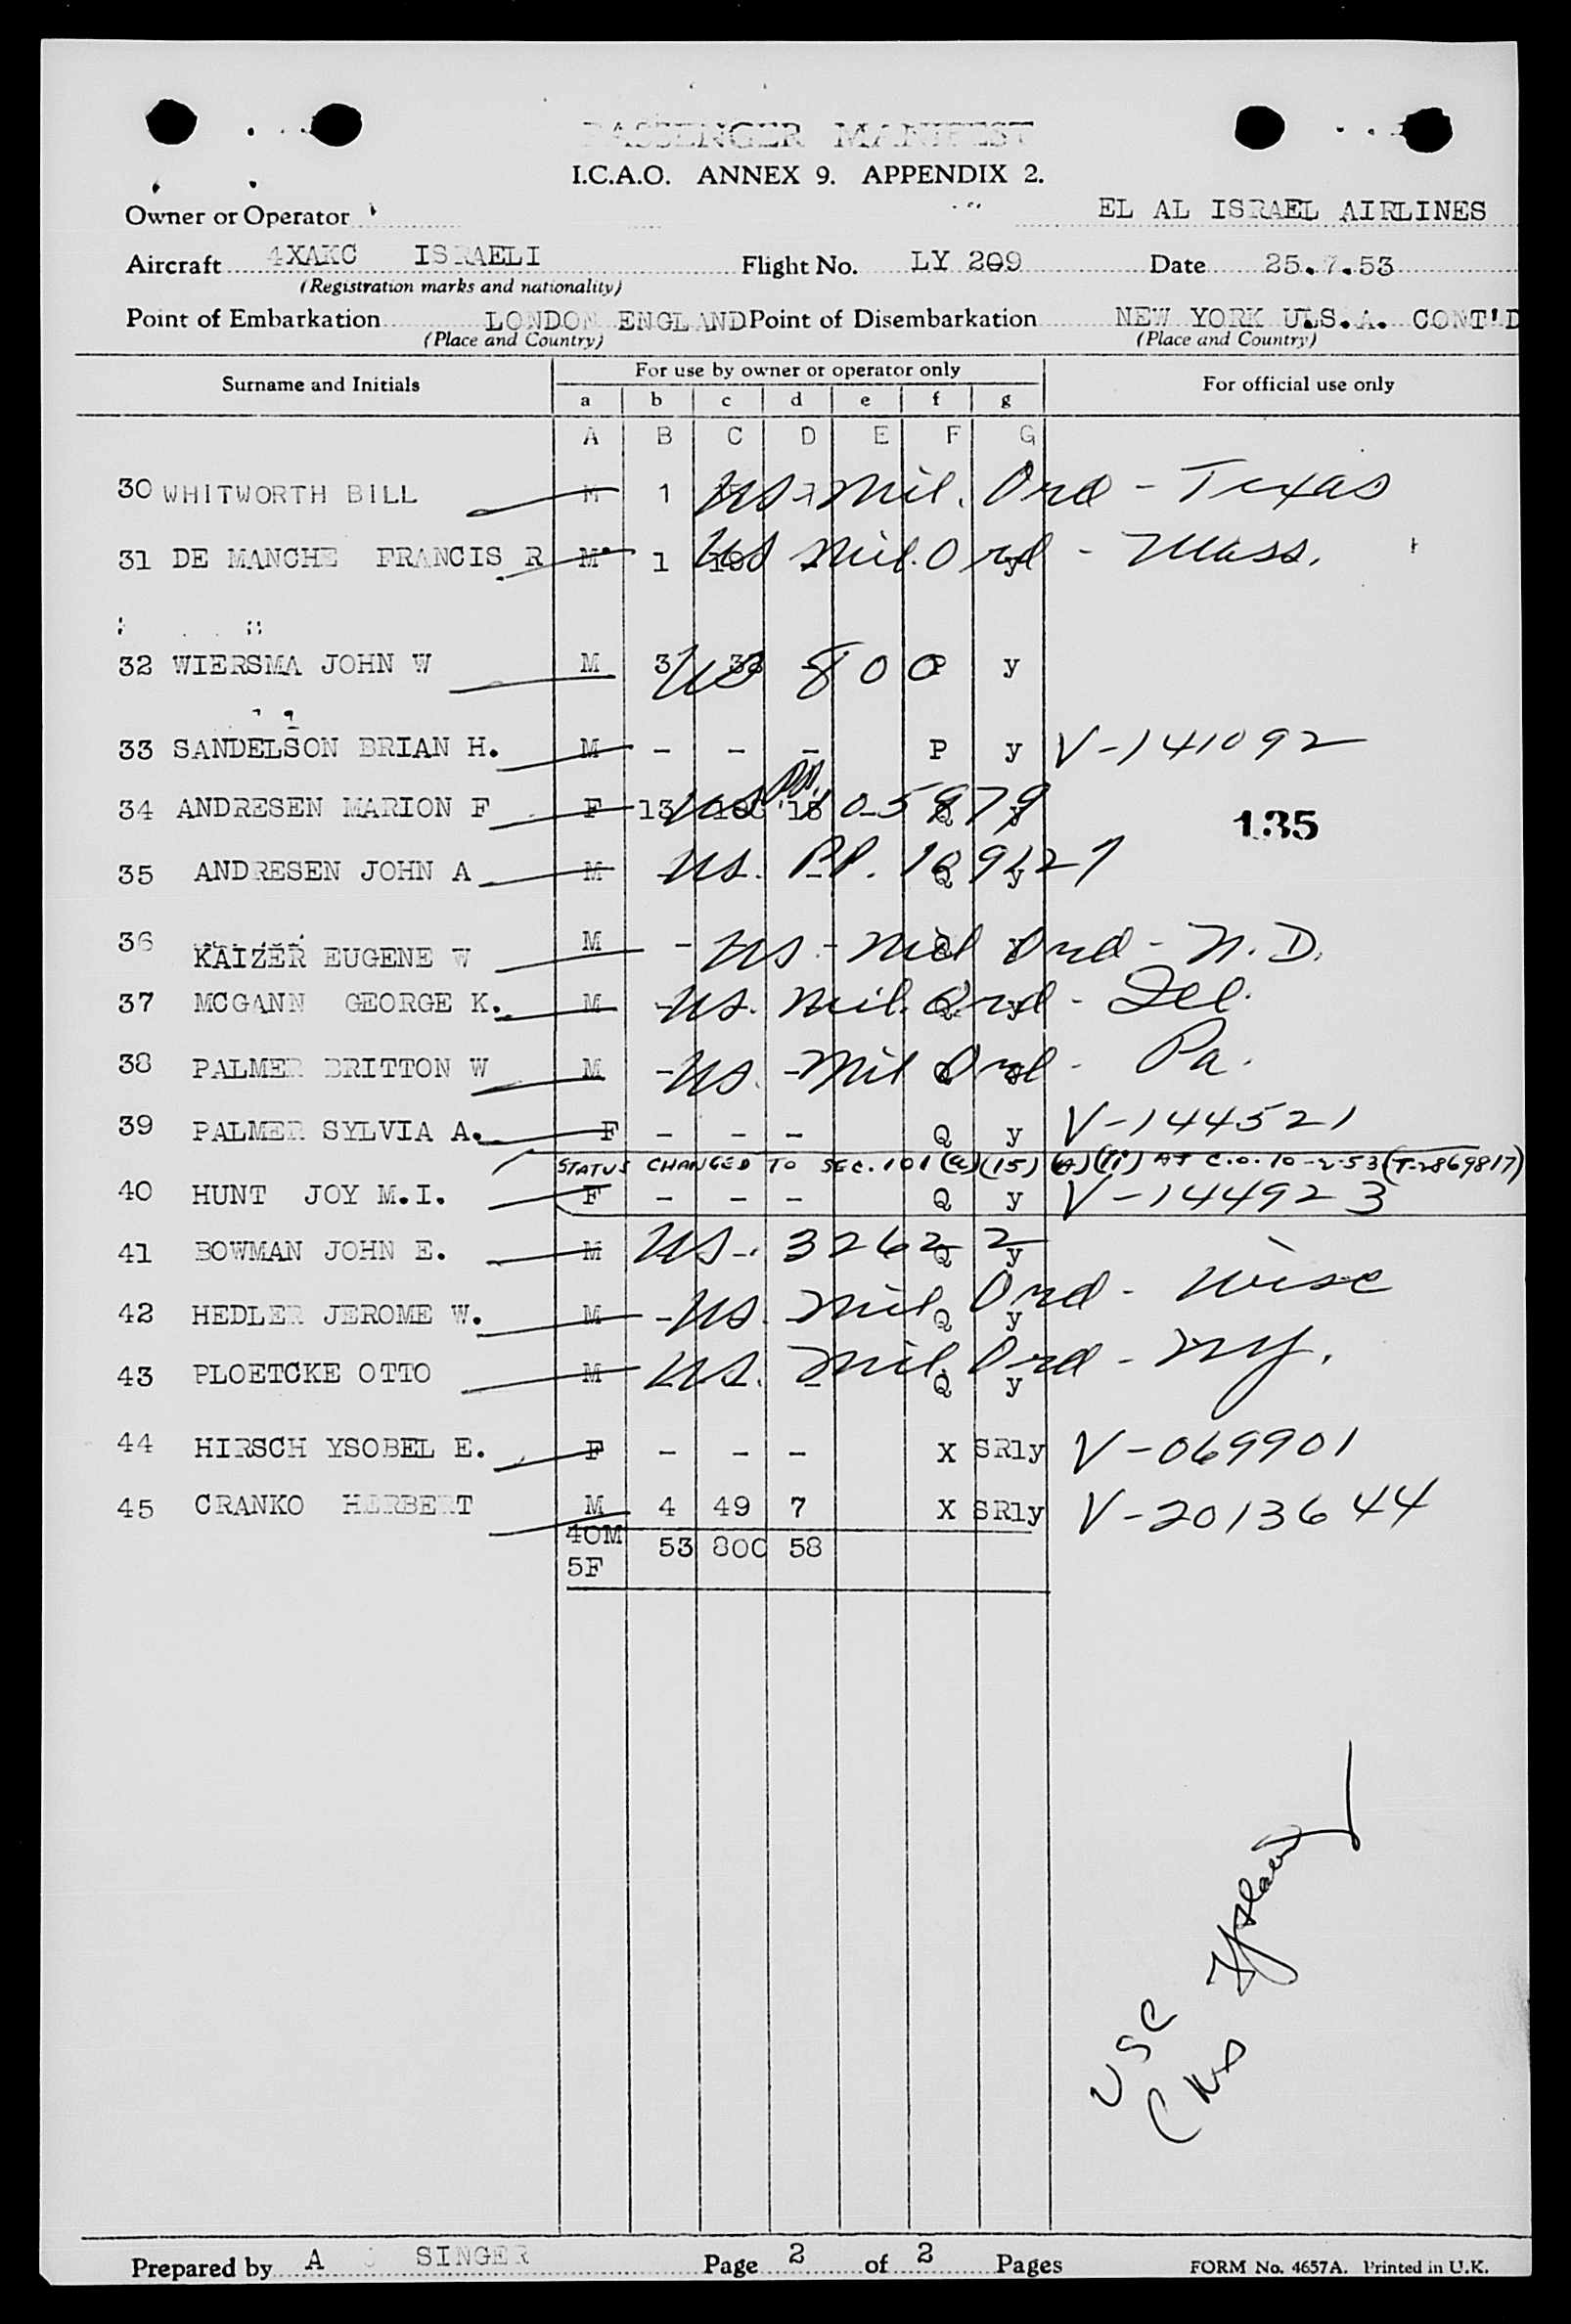 PASSENGER MANIFEST
I.C.A.O. ANNEX 9. APPENDIX 2.
Owner or Operator EL AL ISRAEL AIRLINES
Aircraft 4XAKC ISRAELI Flight No. LY 209 Date 25.7.53
(Registration marks and nationality)
Point of Embarkation LONDON ENGLAND Point of Disembarkation NEW YORK U.S.A. CONT'D
(Place and Country) (Place and Country)
Surname and Initials For use by owner or operator only For official use only
a b c d e f g
A B C D E F G
30 WHITWORTH BILL M 1 US - Mil. Ord - Texas
31 DE MANCHE FRANCIS R M 1 US Mil. Ord - Mass. y
32 WIERSMA JOHN W M 3 US 800 P y
33 SANDELSON BRIAN H. M - - - P y V-141092
34 ANDRESEN MARION F F 13 US 18 Q y
135
35 ANDRESEN JOHN A M - US. PP. Q y
36 KAIZER EUGENE W M - US. - Mil Ord - N.D.
37 MCGANN GEORGE K. M - US. Mil. Ord - Del. Q y
38 PALMER BRITTON W M - US. - Mil Ord - Pa.
39 PALMER SYLVIA A. F - - - Q y V-144521
STATUS CHANGED TO SEC. 101 (a)(15) (A)(ii) AT C.O. 10-2-53 (T-2869817)
40 HUNT JOY M.I. F - - - Q y V-144923
41 BOWMAN JOHN E. M US - 32622 Q y
42 HEDLER JEROME W. M - US. - Mil. Ord - Wisc Q y
43 PLOETCKE OTTO M - US. - Mil. Ord - NY. Q y
44 HIRSCH YSOBEL E. F - - - X SRly V-069901
45 CRANKO HERBERT M 4 49 7 X SRly V-2013644
40M 53 800 58
5F
USC
Prepared by A J SINGER Page 2 of 2 Pages FORM No. 4657A. Printed in U.K.